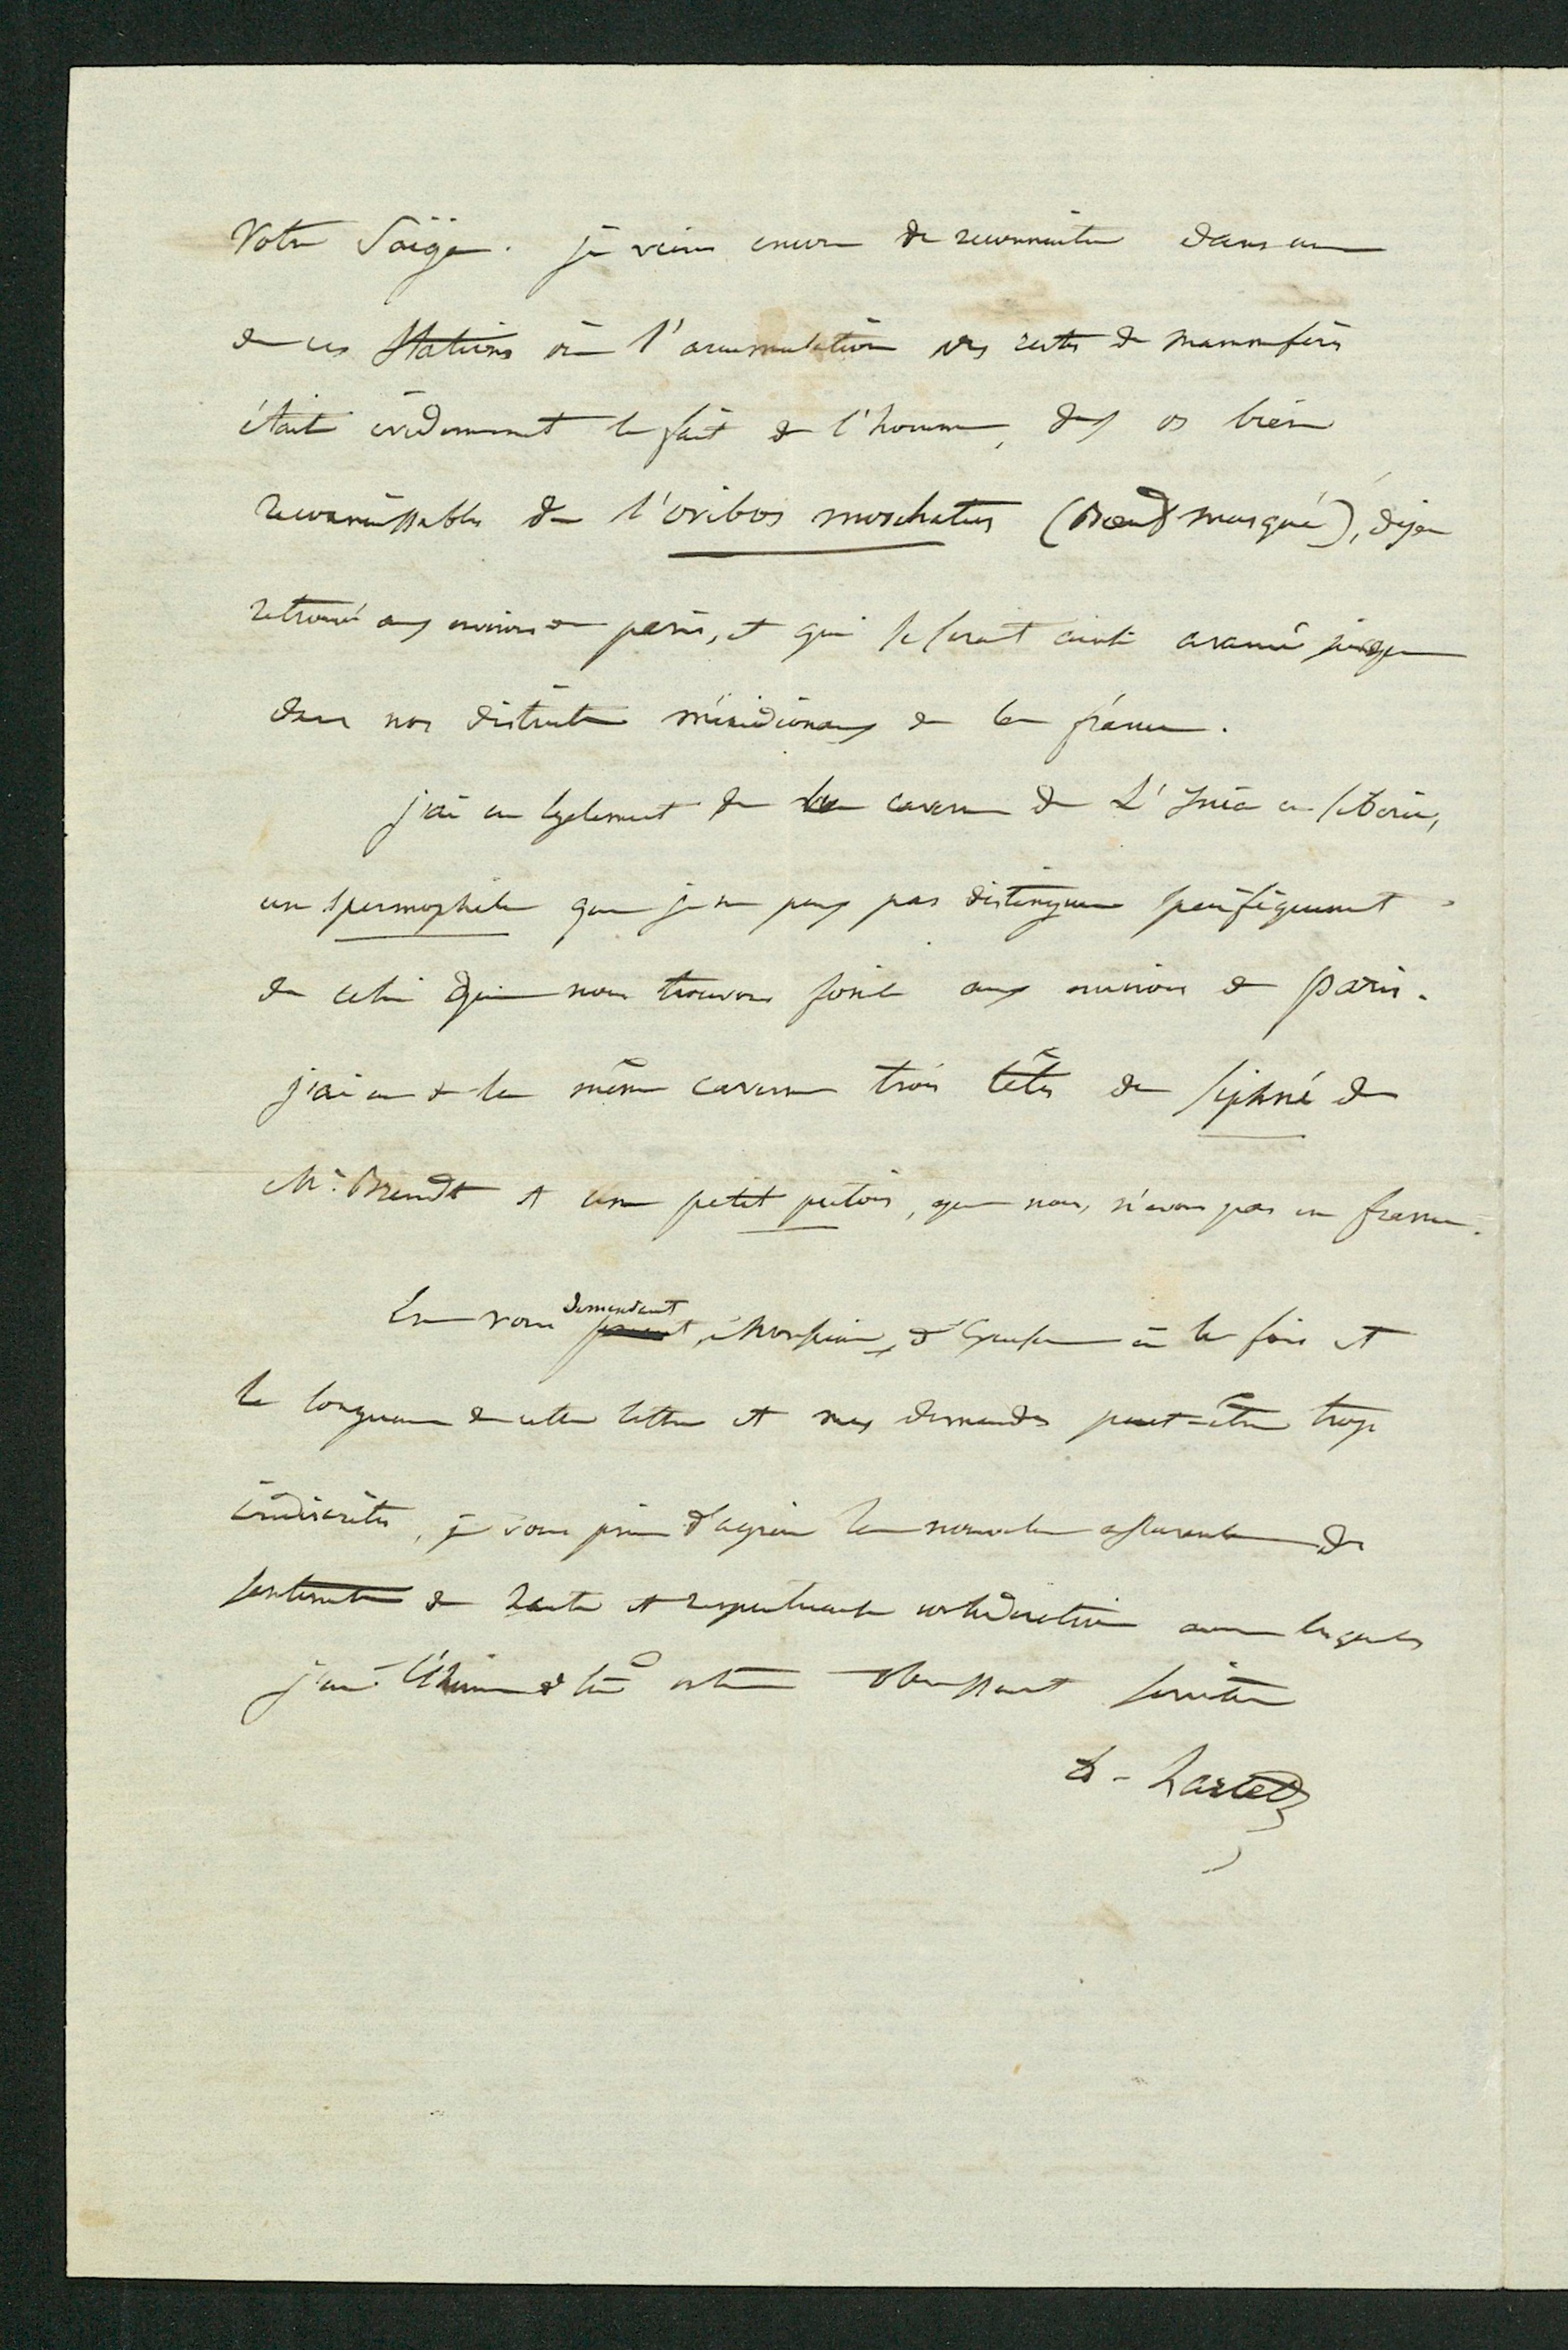 Votre Saïga. je viens encore de reconnaitre dans une
de ces stations où l'accumulation des restes de mammifères
était évidemment le fait de l'homme, des os bien
reconnaissables de l'ovibos moschatus (Bœuf musqué), déja
retrouvé aux environs de paris, et qui se serait ainsi avancé jusque
dans nos districts méridionaux de la france.
j'ai eu egalement de la caverne de L' en sibérie,
un spermophile que je ne peux pas distinguer spécifiquement
de celui que nous trouvons fossile aux environs de paris.
j'ai eu de la même caverne trois têtes de siphné de
Mr. Brandt et un petit putois, que nous n'avons pas en france.
En vous demandant, Monsieur, d'excuser à la fois et
la longueur de cette lettre et mes demandes peut-être trop
indiscrètes, je vous prie d'agréer la nouvelle assurance des
sentiments de haute et respectueuse considération avec lesquels
j'ai l'honneur d'être votre obéissant serviteur
E. Lartet